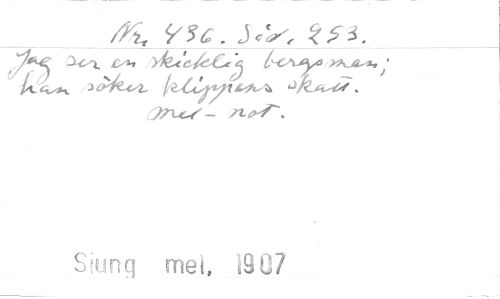 Nr. 436. Sid. 253.
Jag ser en skicklig bergsman;
han söker klippans skatt.
mel-not.
Sjung mel, 1907